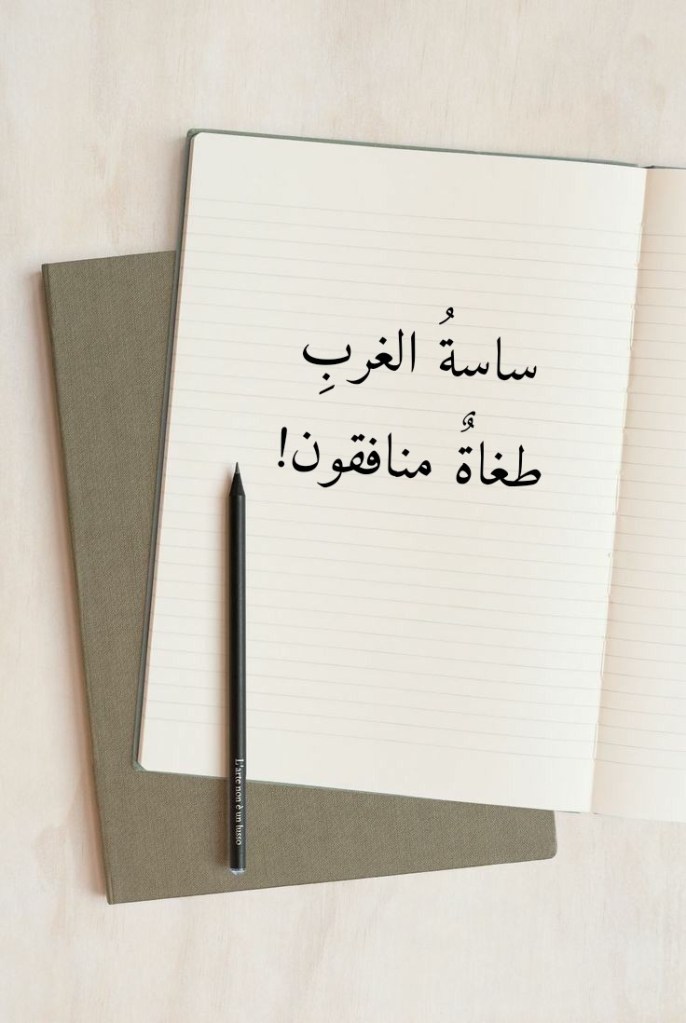 ساسةُ الغربِ
طغاةٌ منافقون!
L'arte non è un lusso